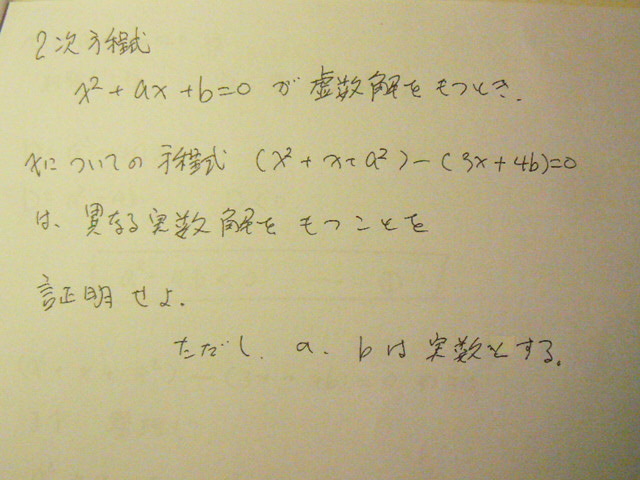 2次方程式
x²+ax+b=0 が 虚数解をもつとき.
xについての 方程式 (x²+x+a²)-(3x+4b)=0
は、異なる実数解を もつことを
証明せよ.
ただし、a、bは実数とする。